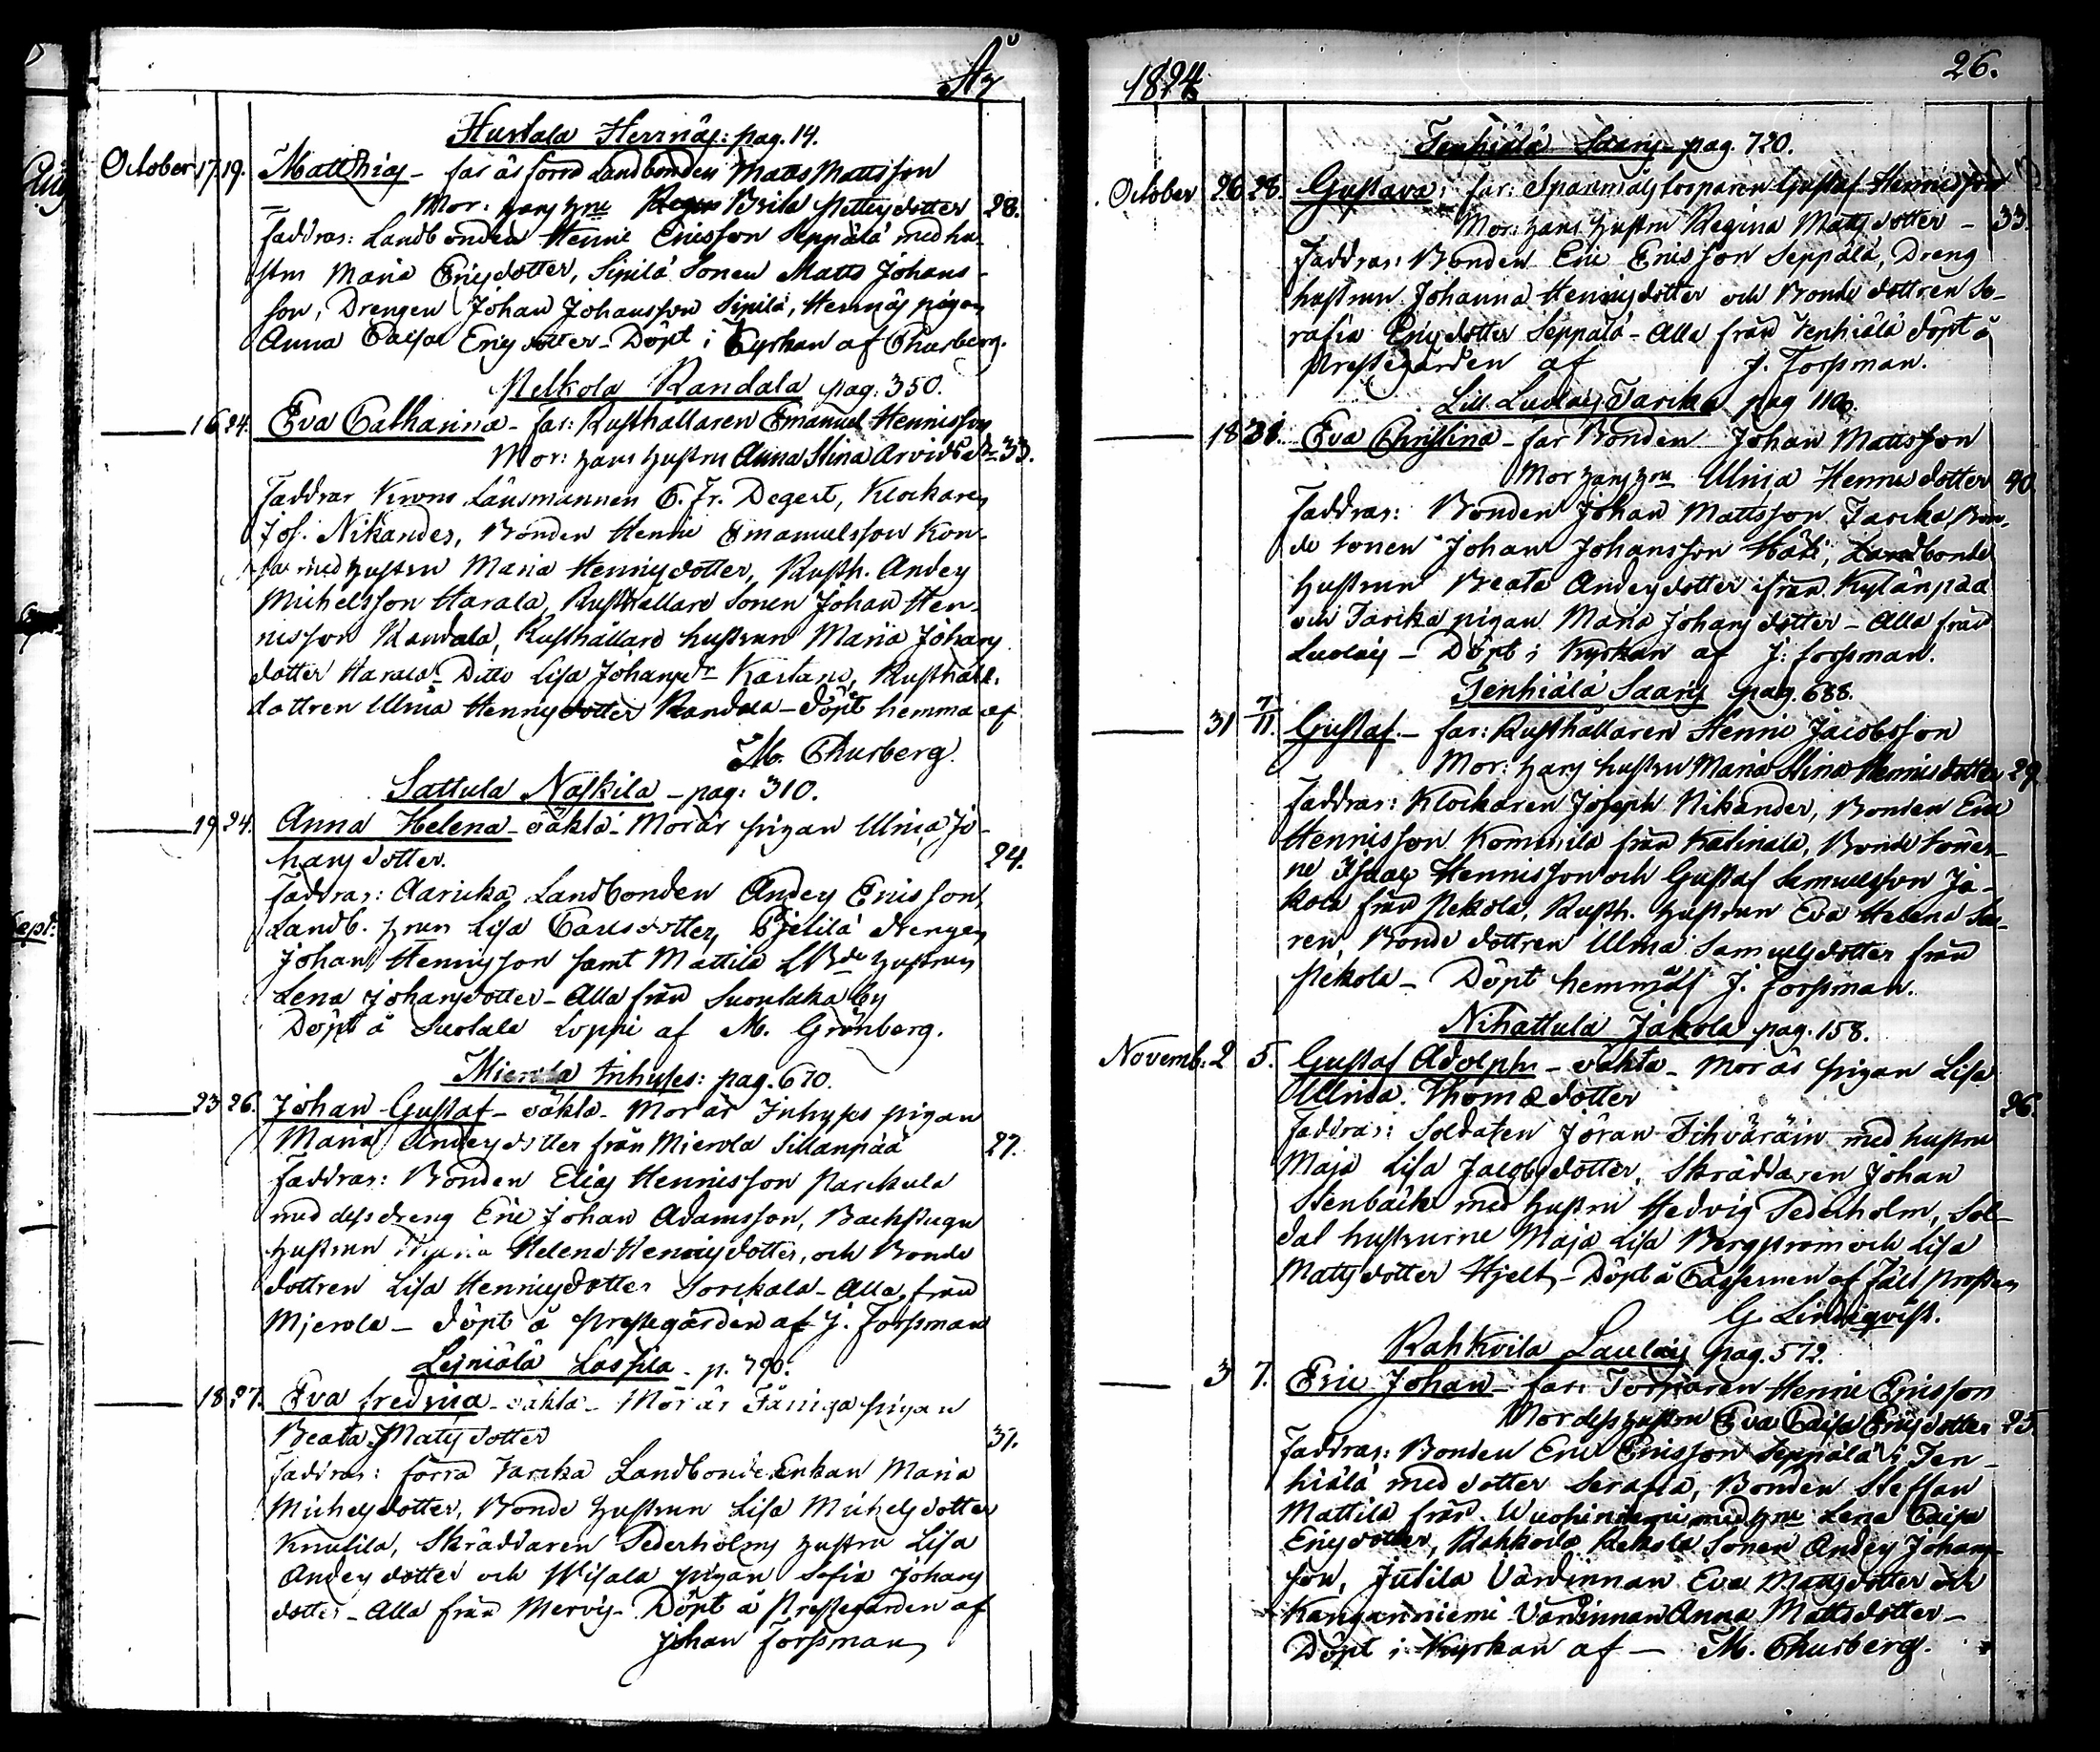 Åu
Hurtala Herrnäs: pag. 14.
October 17. 19. Matthias – far är förra Landbonden Matts Mattsson
Mor: hans hru Brita Petters dotter 28.
Faddrar: Landbonden Henric Ericsson Seppälä med hu-
stru Maria Ericsdotter, Sipilä Sonen Matts Johans-
son, Drengen Johan Johansson Sipilä, Herrnäs pigan
Anna Caisa Erics dotter – Döpt i Kyrkan af Thurberg.
Pelkola Randala pag: 350.
16 24. Eva Catharina – far: Rusthållaren Emanuel Hennisson
Mor: hans hustru Anna Stina Arvids dr 33.
Faddrar Krono Länsmannen C. Fr. Degert, Klockaren
Jos. Nikander, Bonden Henric Emanuelsson Kon-
med hustru Maria Hennisdotter, Rusth. Anders
Michelsson Harala, Rusthållare Sonen Johan Hen-
nisson Randala, Rusthållare hustrun Maria Johans
dotter Harala – Ditto Lisa Johans dr Kastari, Rusthåll.
dottren Ulrica Hennis dotter Randala – döpt hemma af
M. Thurberg.
Sattula Naskila – pag: 310.
19. 24. Anna Helena – oäkta – Mor är pigan Ulrica Jo-
hans dotter. 24.
Faddrar: Aaricka Landbonden Anders Ericsson
Landb. hrun Lisa Carlsdotter, Pjelilä drengen
Johan Hennisson samt Mattila LBde hustrun
Lena Johansdotter – Alla från Suontaka by
Döpt å Suotala Loppi af M. Grönberg.
Mierola Inhyses: pag. 670.
23 26. Johan Gustaf – oäkta – Mor är Inhyses pigan
Maria Andersdotter från Mierola Sillanpää 27.
Faddrar: Bonden Elias Hennisson Parckula
med dess dreng Eric Johan Adamsson, Backstugu
hustrun Helena Hennisdotter, och Bonde
dottren Lisa Hennisdotter Sorckala – Alla från
Mierola – döpt å Prestegården af J. Forssman
Leiniälä Lassila – p. 790.
18 27. Eva Fredrica – oäkta – Mor är Täniga pigan
Beata Mats dotter 31.
Faddrar: förra Jarcka Landbonde Enkan Maria
Michelsdotter, Bonde hustrun Lisa Michelsdotter
Knutila, Skräddaren Sederholms hustru Lisa
Anders dotter och Wisala pigan Sofia Johans
dotter – Alla från Mervis – Döpt å Prestegården af
Johan Forssman
1824 26.
Tenhiälä Saaris – pag. 720.
October 26 28. Gustava: far: Sparnäs torparen Gustaf Hennisson
Mor: hans hustru Regina Matts dotter – 33
Faddrar: Bonden Eric Ericsson Seppälä, Dreng
hustrun Johanna Hennisdotter och Bonde dottren Se-
rafia Ericsdotter Seppälä – Alla från Tenhiälä döpt å
Prestegården af J. Forssman.
Lill Luolais Jaricka pag 110.
18 31. Eva Christina – far Bonden Johan Mattsson
Mor hans hru Ulrica Hennis dotter 40
Faddrar: Bonden Johan Mattsson Jaricka, Bon-
de sonen Johan Johansson Häti, Landbonde
hustrun Beata Andersdotter ifrån Kylänpää
och Jaricka pigan Maria Johansdotter – Alla från
Luolais – Döpt i Kyrkan af J: Forssman.
Tenhiälä Saaris pag. 688.
31 7/11. Gustaf – far: Rusthållaren Henric Jacobsson
Mor: hans hustru Maria Stina Hennisdotter 29
Faddrar: Klockaren Joseph Nikander, Bonden Eric
Hennisson Komonila från Katinala, Bonde Söner-
ne Isaac Hennisson och Gustaf Samuelsson Ja-
kola från Pekola, Rusth. hustrun Eva Helena Saa-
ren Bonde dottren Ulrica Samuelsdotter från
Pekola – Döpt hemma af J. Forssman.
Nihattula Jakola pag. 158.
Novemb: 2 5. Gustaf Adolph – oäkta – Mor är pigan Lisa
Ulrica Thomædotter 26
Faddrar: Soldaten Jöran Tihväräin med hustru
Maja Lisa Jacobsdotter, Skräddaren Johan
Stenbäck med hustru Hedvig Sederholm, Sol-
dat hustrurne Maja Lisa Bergström och Lisa
Matts dotter Hjelt – Döpt å Casernen af Fält Prosten
G. Lindeqvist.
Rahkoila Laulais pag. 572.
3 7. Eric Johan – far: Torparen Henric Ericsson
Mor dess hustru Eva Caisa Ericsdotter 25
Faddrar: Bonden Eric Ericsson Seppälä i Ten-
hiälä med dotter Serafia, Bonden Steffan
Mattila från Wuohiniemi med hru Lena Caisa
Ericsdotter, Rahkoila Rekola Sonen Anders Johans-
son, Jutila Värdinnan Eva Mattsdotter och
Kanganniemi Värdinnan Anna Mattsdotter –
Döpt i Kyrkan af – M. Thurberg.